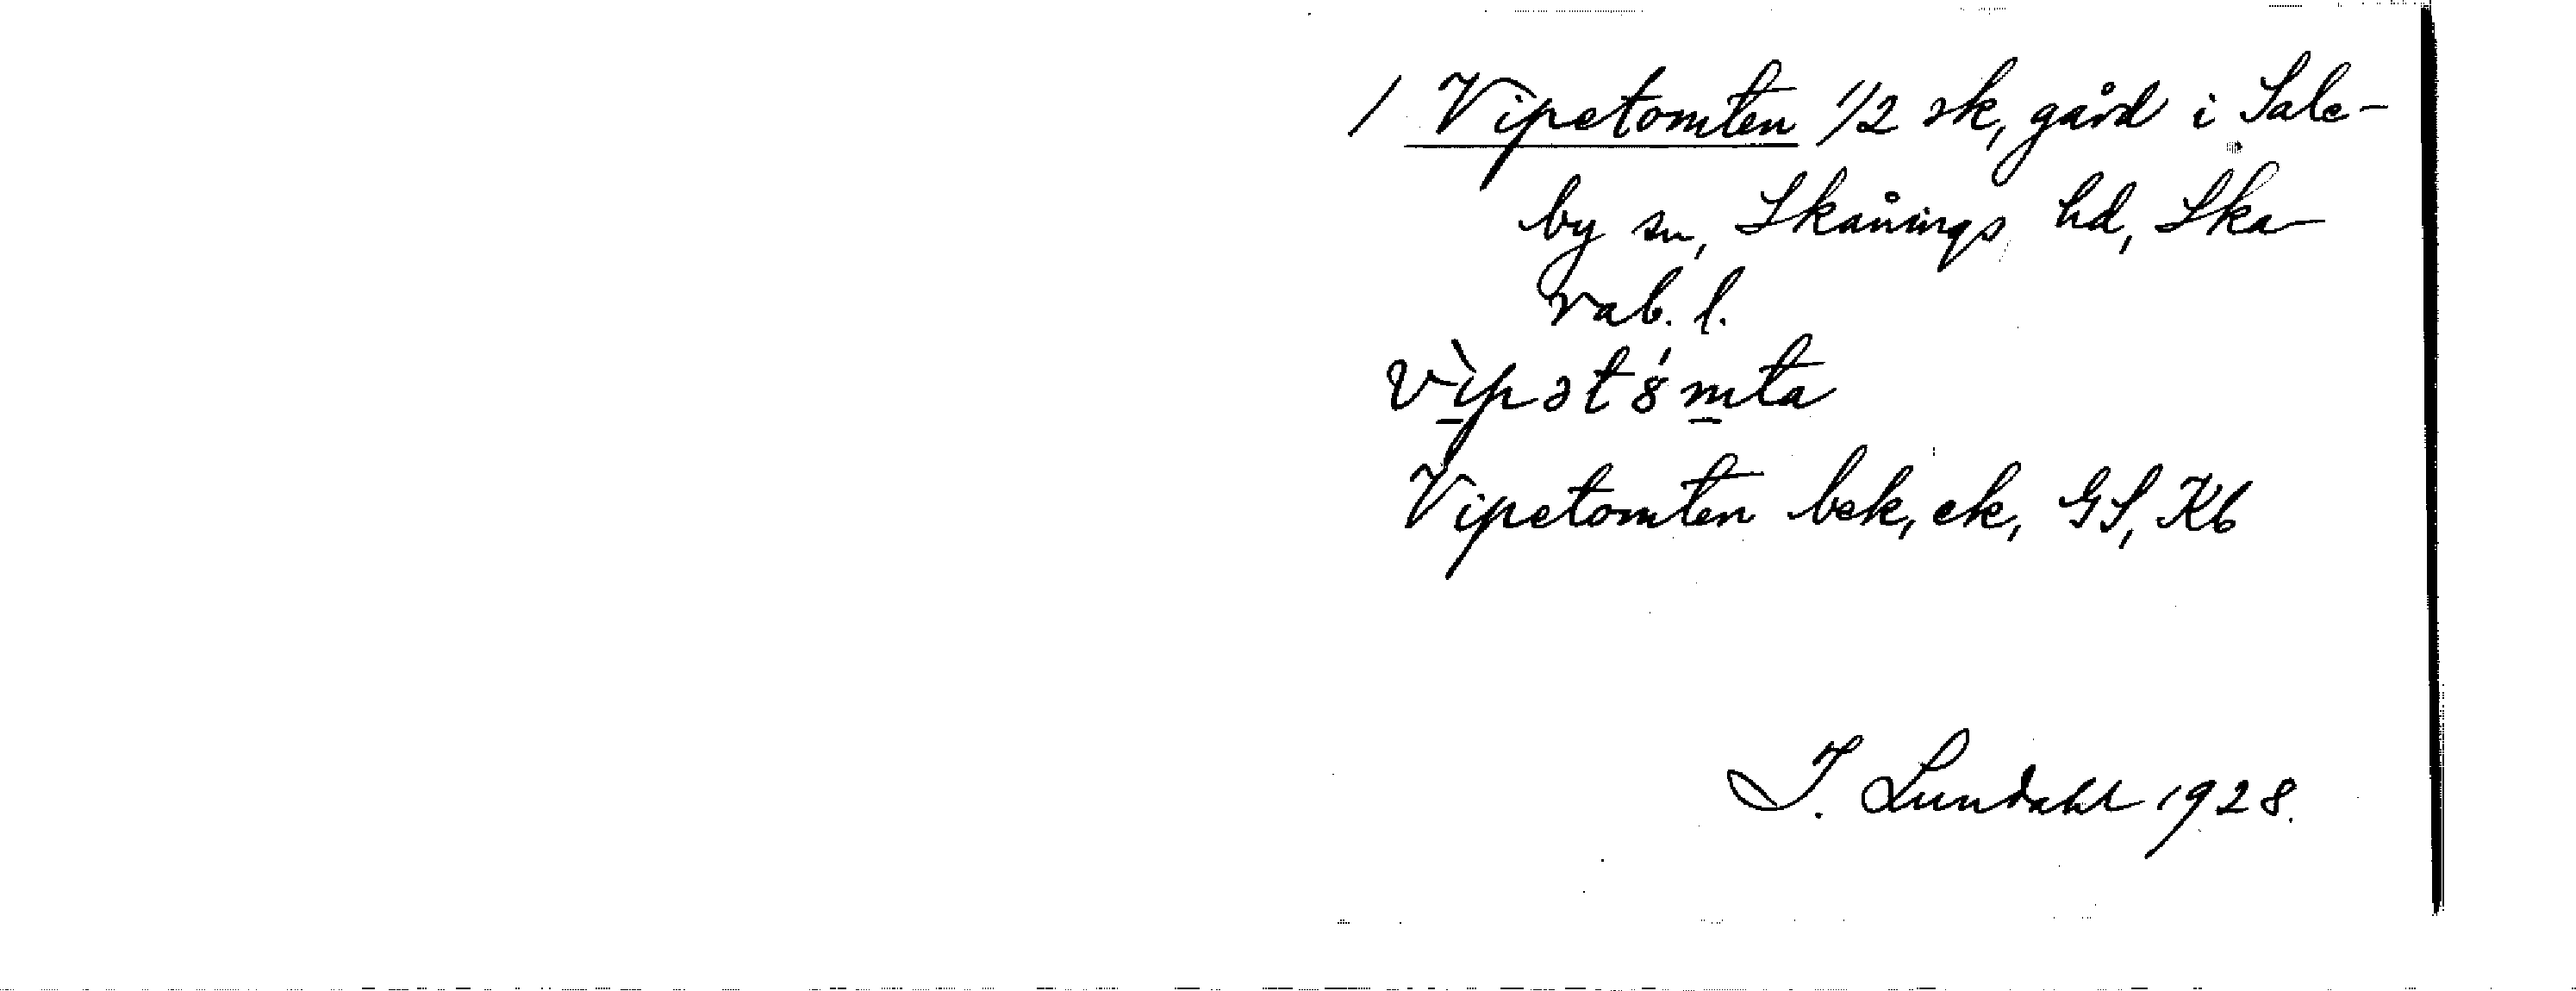 / Vipetomten 1/2 sk, gård i Sale-
by sn, Skånings hd, Ska-
rab. l.
vìpət8́mta
Vipetomten bek, ek, GS, Kb
I. Lundahl 1928.